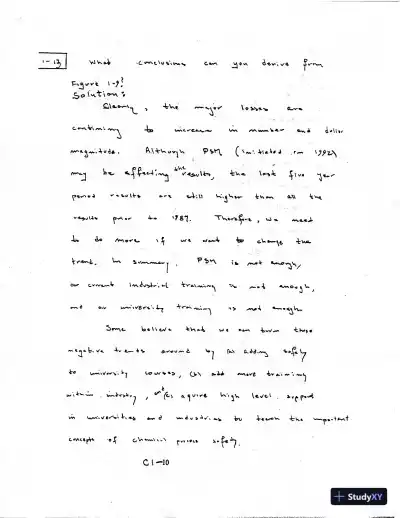 1-13 What conclusions can you derive from
Figure 1-9?
Solution:
Clearly, the major losses are
continuing to increase in number and dollar
magnitude. Although PSM (initiated in 1992)
may be effecting the results, the last five year
period results are still higher than all the
results prior to 1987. Therefore, we need
to do more if we want to change the
trend. In summary, PSM is not enough,
or current industrial training is not enough,
and or university training is not enough
Some believe that we can turn these
negative trents around by (a) adding safety
to university courses, (b) add more training
within industry, or (c) aquire high level support
in universities and industries to teach the important
concepts of chemical process safety.
C1-10
StudyXY